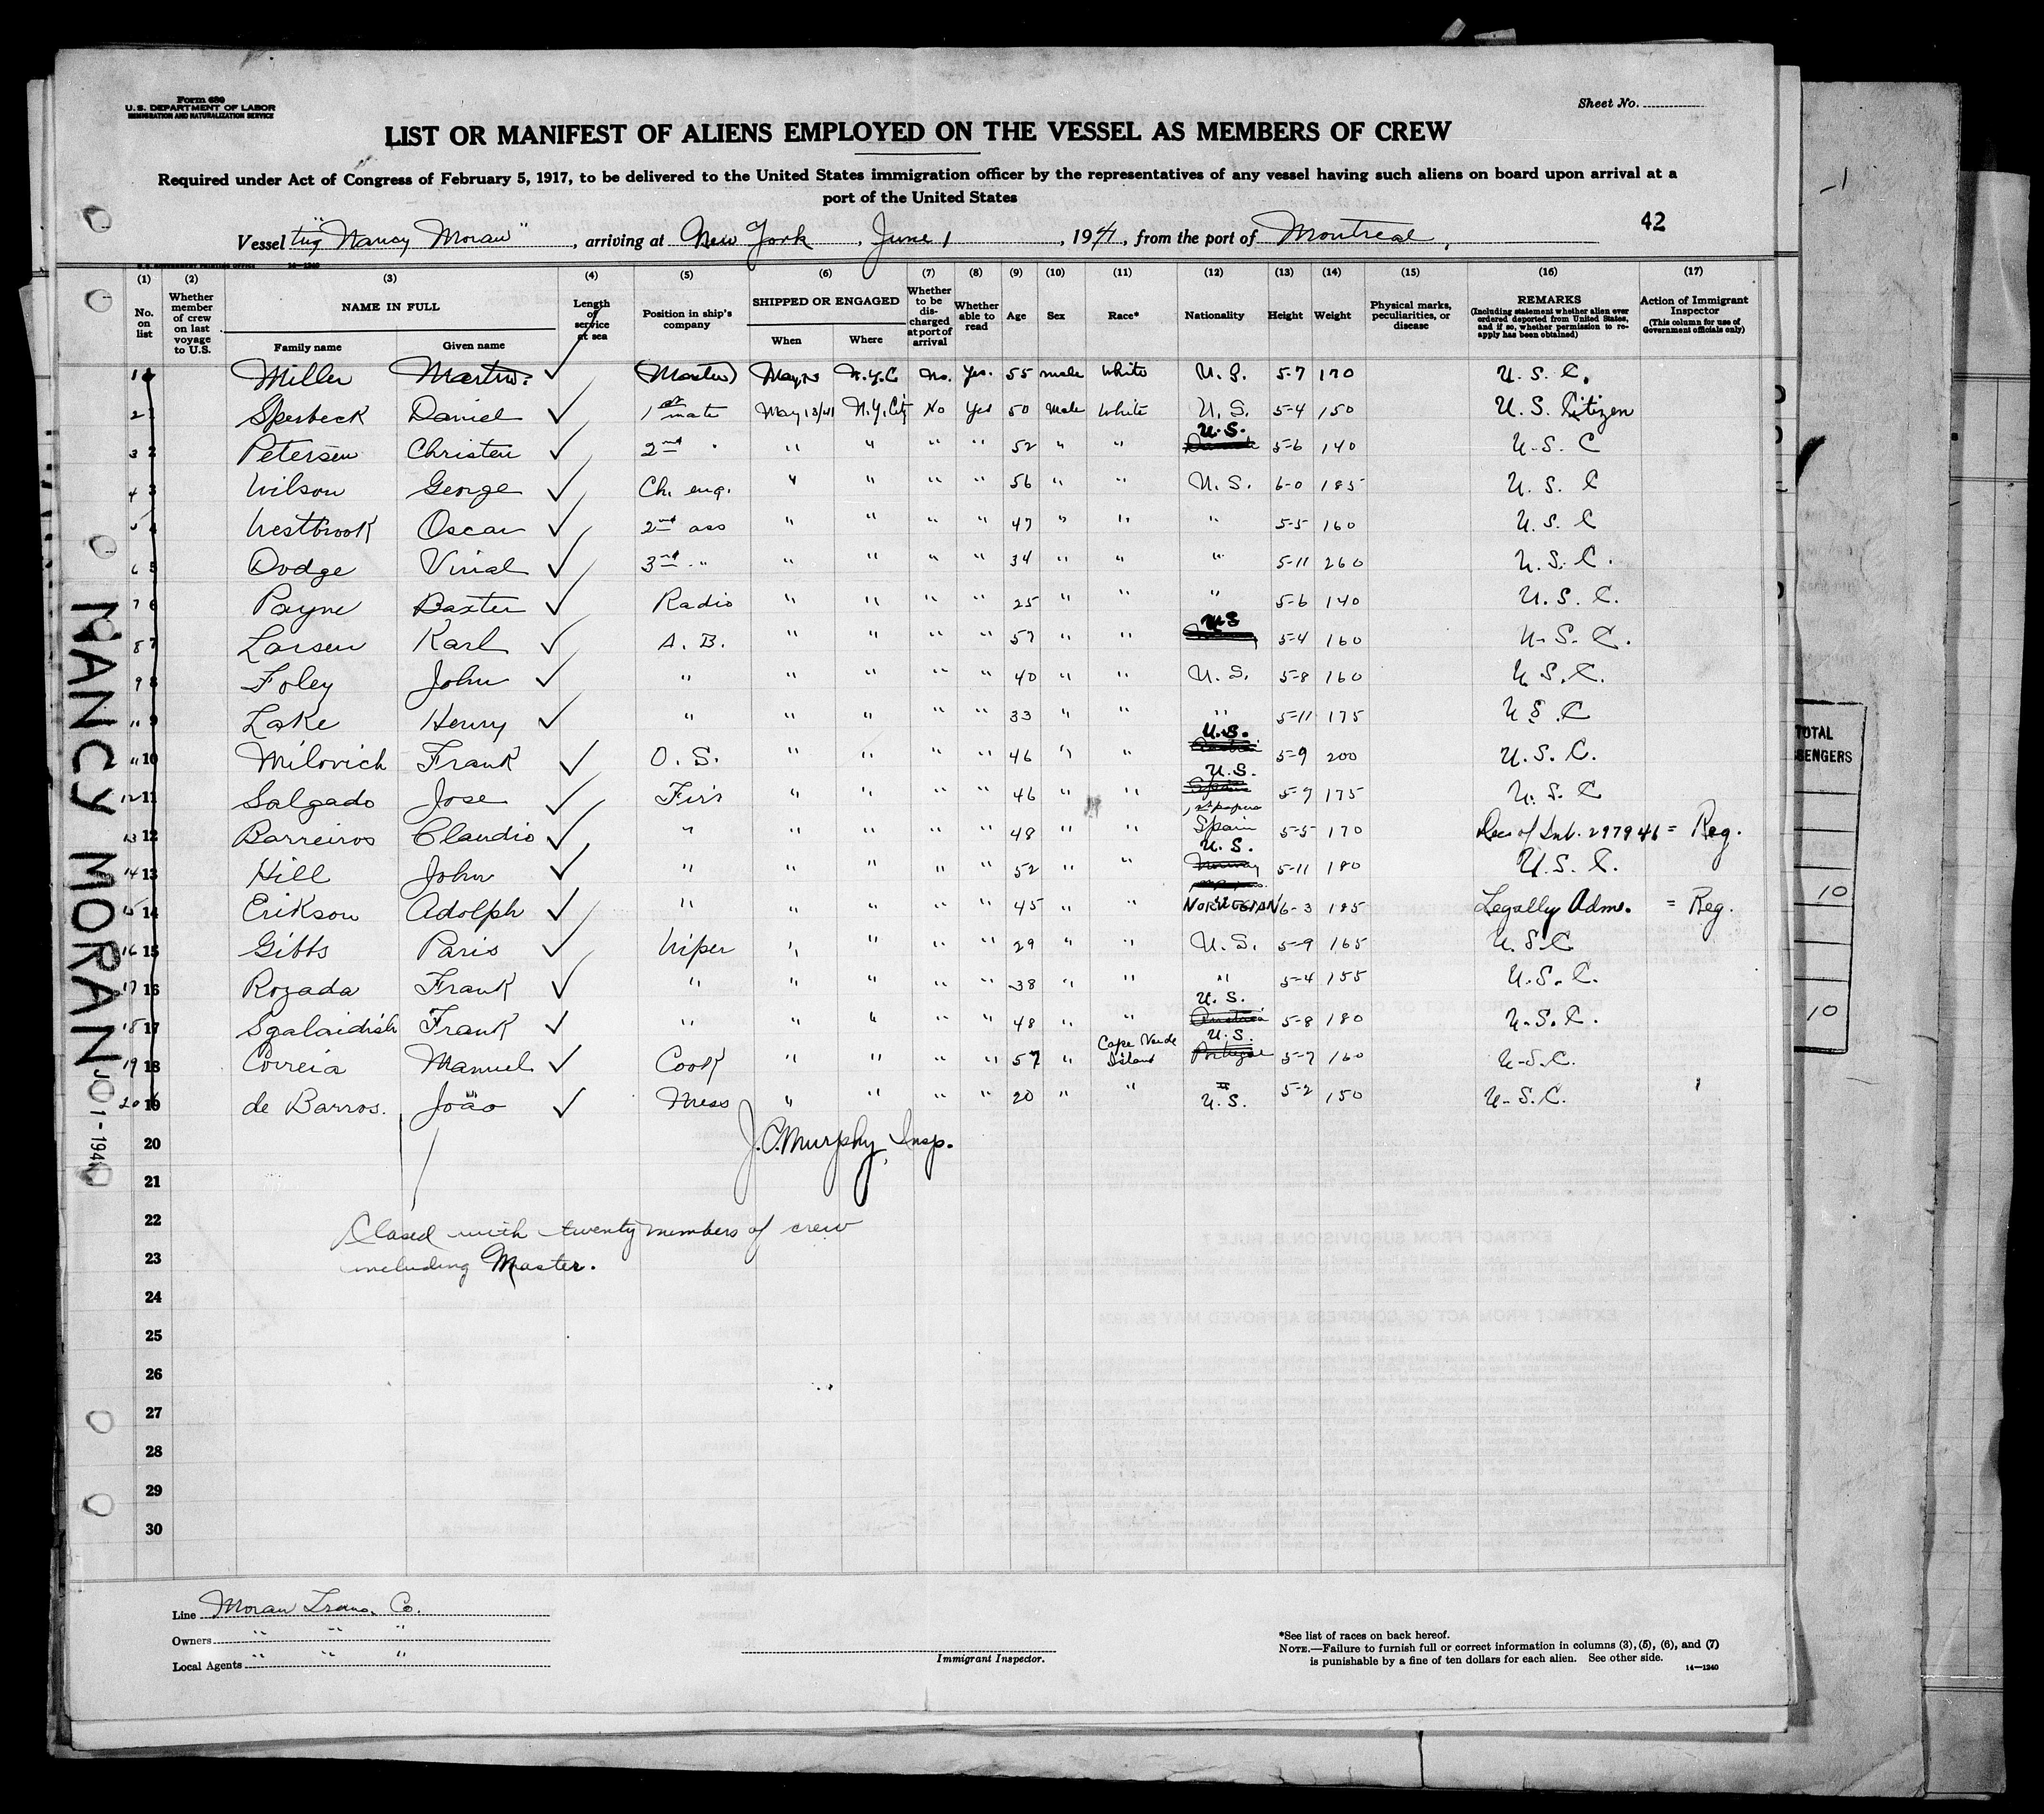 Form 680
U. S. DEPARTMENT OF LABOR
IMMIGRATION AND NATURALIZATION SERVICE
Sheet No.
LIST OR MANIFEST OF ALIENS EMPLOYED ON THE VESSEL AS MEMBERS OF CREW
Required under Act of Congress of February 5, 1917, to be delivered to the United States immigration officer by the representatives of any vessel having such aliens on board upon arrival at a
port of the United States
Vessel tug "Nancy Moran", arriving at New York, June 1, 1941, from the port of Montreal,
42
(1) (2) (3) (4) (5) (6) (7) (8) (9) (10) (11) (12) (13) (14) (15) (16) (17)
No. on list
Whether member of crew on last voyage to U.S.
NAME IN FULL
Family name Given name
Length of service at sea
Position in ship's company
SHIPPED OR ENGAGED
When Where
Whether to be discharged at port of arrival
Whether able to read
Age
Sex
Race*
Nationality
Height
Weight
Physical marks, peculiarities, or disease
REMARKS
(Including statement whether alien ever ordered deported from United States, and if so, whether permission to reapply has been obtained)
Action of Immigrant Inspector
(This column for use of Government officials only)
1 Miller Martin (Master) May 13 N.Y.C No. Yes. 55 male White U. S. 5-7 170 U. S. C.
2 1 Sperbeck Daniel 1st mate May 13/41 N.Y. City No Yes 50 Male White U. S. 5-4 150 U. S. Citizen
3 2 Petersen Christen 2nd " " " " " 52 " " U. S. 5-6 140 U. S. C
4 3 Wilson George Ch. eng. " " " " 56 " " U. S. 6-0 185 U. S. C
5 4 Westbrook Oscar 2nd ass " " " " 47 " " " 5-5 160 U. S. C
6 5 Dodge Virial 3rd " " " " " 34 " " " 5-11 260 U. S. C.
7 6 Payne Baxter Radio " " " " 25 " " " 5-6 140 U. S. C.
8 7 Larsen Karl A. B. " " " " 57 " " U.S 5-4 160 U. S. C.
9 8 Foley John " " " " " 40 " " U. S. 5-8 160 U. S. C.
9 Lake Henry " " " " " 33 " " " 5-11 175 U S. C
11 10 Milovich Frank O. S. " " " " 46 " " U.S. Austria 5-9 200 U. S. C.
12 11 Salgado Jose Fir's " " " " 46 " " U.S. Spain 5-9 175 U. S. C
13 12 Barreiros Claudio " " " " " 48 " " 1st papers Spain 5-5 170 Dec of Int. 297946 = Reg.
14 13 Hill John " " " " " 52 " " U. S. Norway 5-11 180 U. S. C.
15 14 Erikson Adolph " " " " " 45 " " NORWEGIAN 6-3 185 Legally Adm. = Reg.
16 15 Gibbs Paris Wiper " " " " 29 " " U. S. 5-9 165 U. S. C
17 16 Rozada Frank " " " " " 38 " " " 5-4 155 U. S. C.
18 17 Sgalaidish Frank " " " " " 48 " " U. S. Austria 5-8 180 U. S. C.
19 18 Correia Manuel Cook " " " " 57 " Cape Verde Island U.S. Portugal 5-7 160 U-S.C.
20 19 de Barros. João Mess " " " " 20 " " " U. S. 5-2 150 U-S.C.
20 J.C. Murphy, Insp.
21
22 Closed with twenty members of crew
23 including Master.
24
25
26
27
28
29
30
NANCY MORAN
1-194
TOTAL
10
10
Line Moran Trans. Co.
Owners " " "
Local Agents " " "
Immigrant Inspector.
*See list of races on back hereof.
NOTE.—Failure to furnish full or correct information in columns (3), (5), (6), and (7)
is punishable by a fine of ten dollars for each alien. See other side.
14—1240